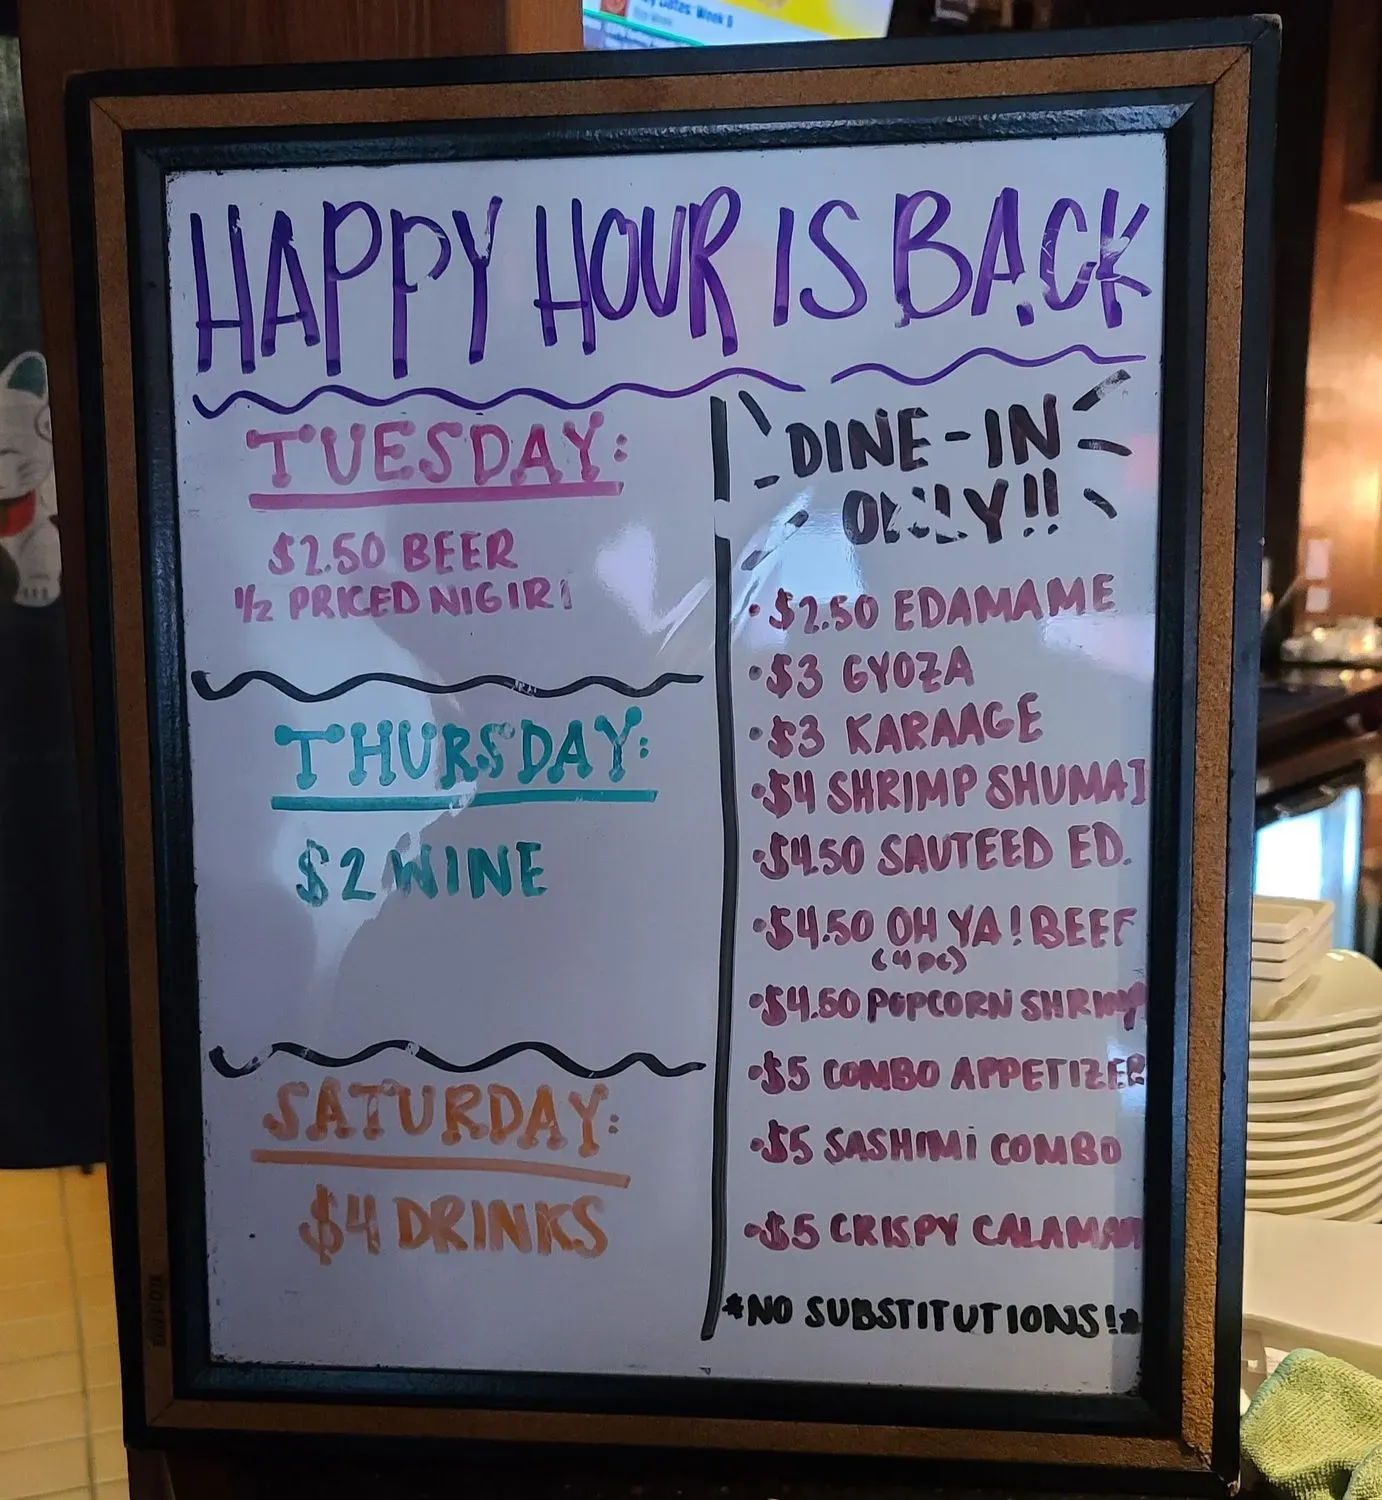 Dates: Week 6
HAPPY HOUR IS BACK
TUESDAY:
$2.50 BEER
1/2 PRICED NIGIRI
THURSDAY:
$2 WINE
SATURDAY:
$4 DRINKS
DINE-IN
ONLY!!
•$2.50 EDAMAME
•$3 GYOZA
•$3 KARAAGE
•$4 SHRIMP SHUMAI
•$4.50 SAUTEED ED.
•$4.50 OH YA! BEEF
(4 PC)
•$4.50 POPCORN SHRIMP
•$5 COMBO APPETIZER
•$5 SASHIMI COMBO
•$5 CRISPY CALAMARI
*NO SUBSTITUTIONS!*